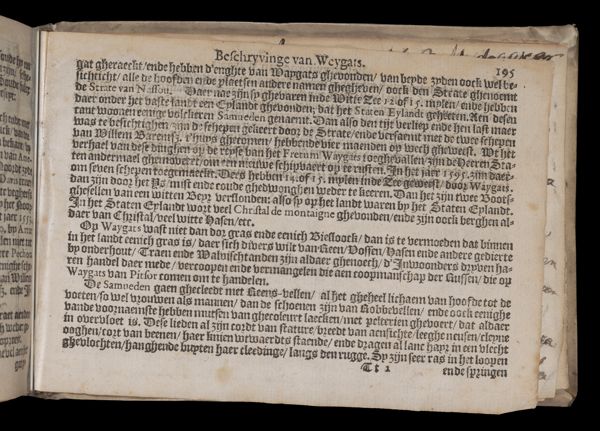 Beschryvinge van Weygats.
195
gat gheraeckt/ ende hebben d'enghte van Waygats ghevonden/ van beyde zyden oock wel be-
sichticht/ alle de hoofden ende plaetsen andere namen ghegheven/ oock den Strate ghenoemt
de Strate van Nassou. Daer nae zijn sy ghevaren inde Witte Zee 12. of 15. mylen/ ende hebben
daer onder het vaste landt een Eylandt ghevonden/ dat het Staten Eylandt gheheten. Aen desen
cant woonen eenige volckeren Samneden genaemt. Dan also den tijt verliep ende hen last maer
was te besichtighen zijn de schepen gekeert door de Strate/ ende versaemt met de twee schepen
van Willem Barentsz. t'huys ghecomen/ hebbende vier maenden op wech gheweest. Met het
verhael van dese dinghen op de reyse van het Fretum Waygats voorghevallen zijn de Heeren Sta-
ten andermael ghemoveert/ om een nieuwe schipvaert op te rusten. In het jaer 1595. zijn daer-
om seven schepen toegemaeckt. Dees hebben 14. of 15. mylen inde Zee geweest/ door Waygats.
dan zijn door het Ys/ mist ende coude ghedwonghen weder te keeren. Dan het zijn twee Boots-
ghesellen van een witten Beyr verslonden: also sy op het landt waren by het Staten Eylandt.
In het Staten Eylandt wort veel Christal de montaigne ghevonden/ ende zijn oock berghen al-
daer van Christal/ veel witte Hasen/ etc.
Op Waygats wast niet dan dor gras ende eenich Biesloock/ dan is te vermoeden dat binnen
in het landt eenich gras is/ daer sich divers wilt van Reen/ Vossen/ Hasen ende andere gedierte
by onderhout/ Traen ende Walvischtanden zijn aldaer ghenoech/ d'Inwoonders dryven ha-
ren handel daer mede/ vercoopen ende vermangelen die aen coopmanschap der Russen/ die op
Waygats van Pitsor comen om te handelen.
De Samneden gaen ghecleedt met Reens-vellen/ al het gheheel lichaem van hoofde tot de
voeten/ so wel vrouwen als mannen/ dan de schoenen zijn van Robbevellen/ ende oock eenighe
vande voornaemste hebben mutsen van ghecoleurt laecken/ met pelterien ghevoert/ dat aldaer
in overvloet is. Dese lieden al zijn cordt van stature/ breedt van aensichte/ leeghe neusen/ cleyne
ooghen/ cort van beenen/ haer knien wtwaerdts staende/ ende dragen al lanc hayr in een vlecht
ghevlochten/ hanghende buyten haer cleedinge/ langs den rugge. Sy zijn seer ras in het loopen
Tt 1
ende springen